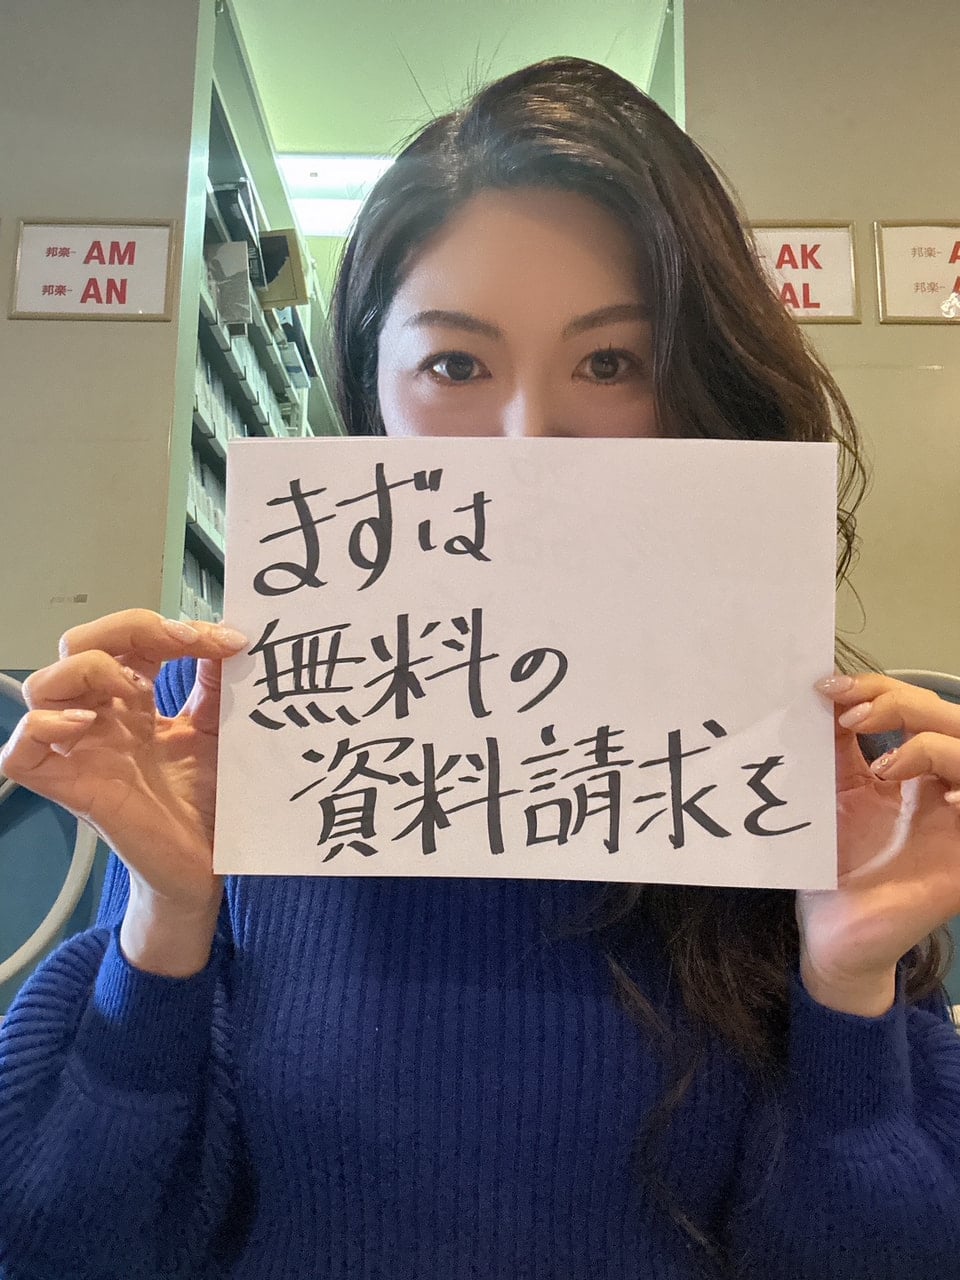 まずは
無料の
資料請求を
邦楽- AM
邦楽- AN
- AK
AL
邦楽-
邦楽-